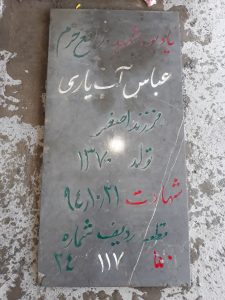 یادبود شهید مدافع حرم
عباس آب یاری
فرزند اصغر
تولد ۱۳۷۰
شهادت ۹۴,۱۰,۲۱
قطعه ردیف شماره
۵۰ ۱۱۷ ۲۴